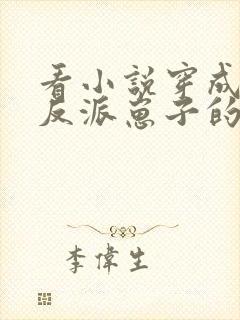 看小說穿成
反派崽子的
李偉生